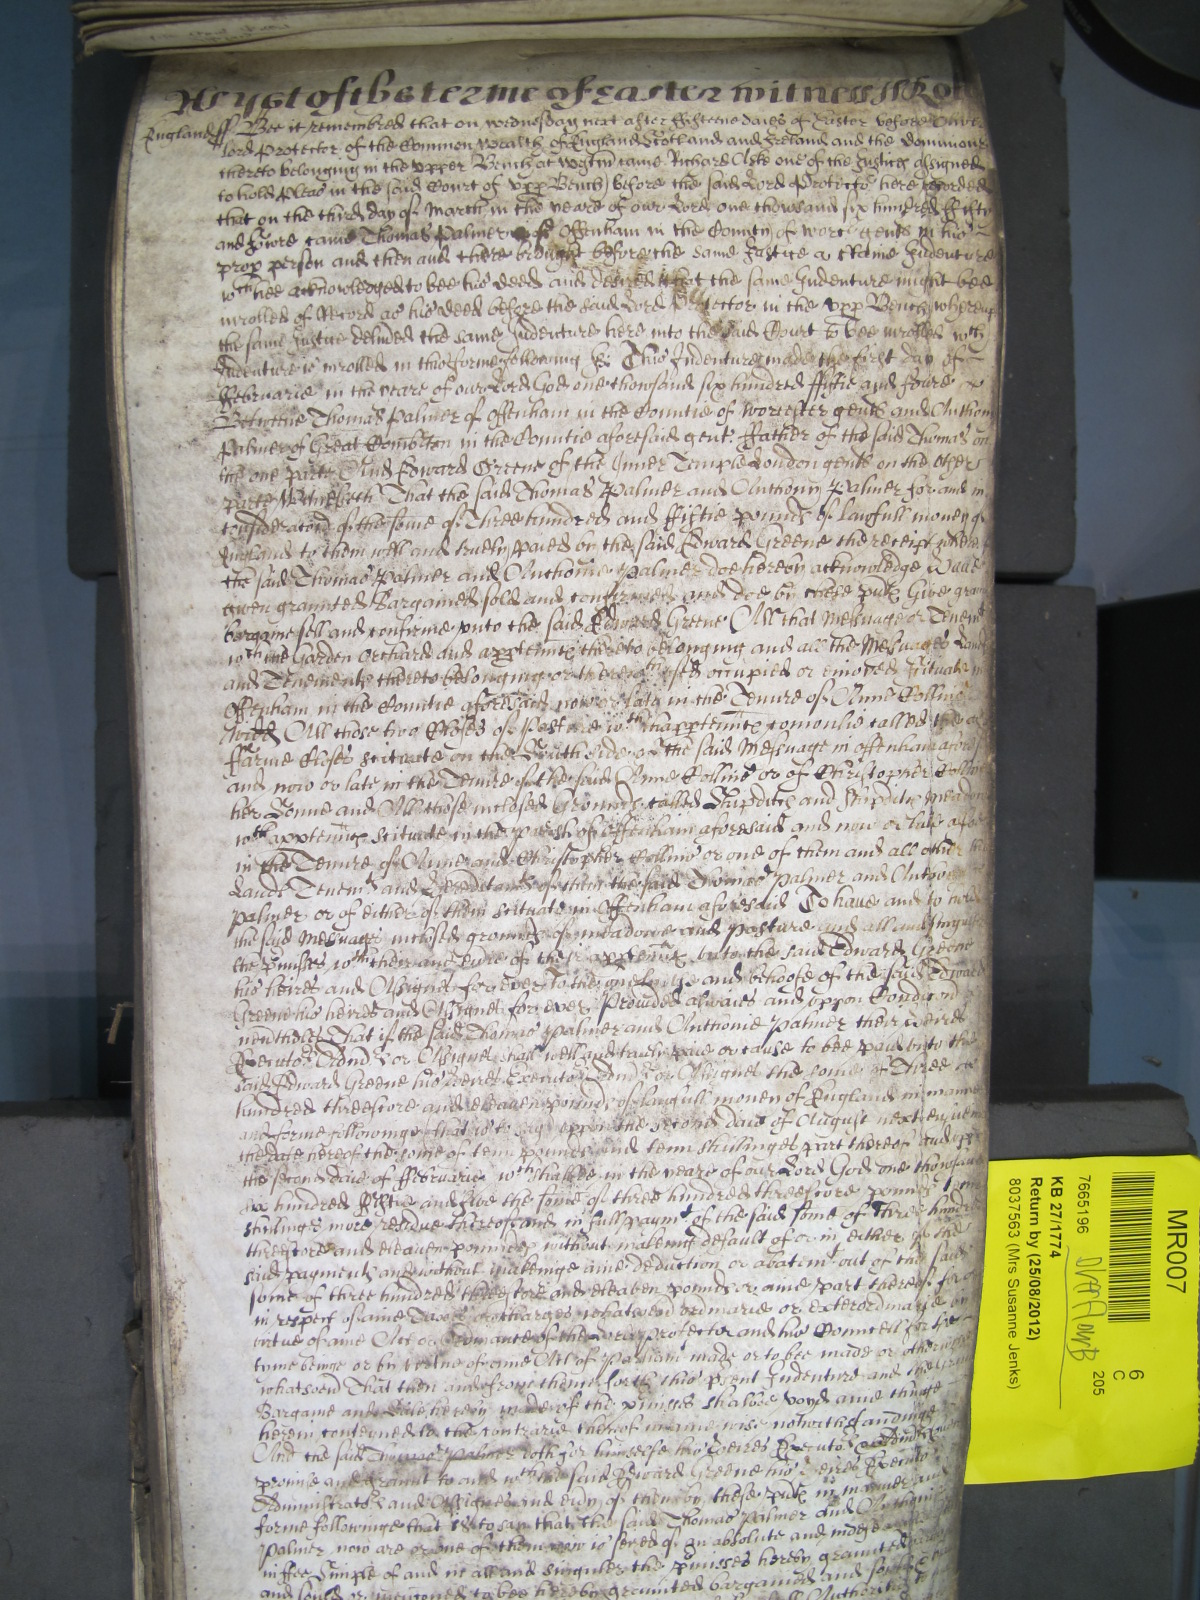 As yet of the terme of Easter witness Rol
England ss Bee it remembred that on wednesday next after fifteene daies of Easter before Oliver
lord Protector of the Common wealth of England Scotland and Ireland and the dominions
thereto belonging in the upper Bench at westm came Richard Aske one of the Justices assigned
to hold pleas in the said Court of upp Bench before the said Lord Protector here recorded
that on the third day of March in the yeare of our Lord one thowsand six hundred fifty
and fowre came Thomas Palmer of Offenham in the County of worc gent in his
prop person and then and there brought before the same Justice a Certaine Indenture
wch hee acknowledged to bee his deed and desired that the same Indenture might bee
inrolled of Record as his deed before the said Lord Protector in the upp Bench whereup
the same Justice delived the same Indenture here into the said Court to bee inrolled wch
Indenture is inrolled in this forme following ss This Indenture made the first day of
ffebruarie in the yeare of our Lord God one thowsand six hundred ffiftie and fowre
Betweene Thomas Palmer of Offenham in the Countie of worcester gent and Anthony
Palmer of Great Comberton in the Countie aforesaid gent ffather of the said Thomas on
the one parte And Edward Greene of the Inner Temple London gent on the other
parte Witnesseth That the said Thomas Palmer and Anthony Palmer for and in
consideracon of the some of Three hundred and ffiftie pounds of lawfull money of
England to them well and truely paied by the said Edward Greene the receipt whereof
the said Thomas Palmer and Anthonie Palmer doe hereby acknowledge Have
given graunted Bargained sold and confirmed and doe by these psnts Give graunt
bargaine sell and confirme unto the said Edward Greene All that Messuage or Tenemt
wth the Garden Orchard and apptennts thereto belonging and all the Messuages Lands
and Tenements thereto belonging or therewth used occupied or enioyed scituate in
Offenham in the Countie aforesaid now or late in the Tenure of Anne Collins
widd All those two Closes of Pasture wth thapptennts comonlie called the
Farme Closes scituate on the South side of the said Messuage in Offenham aforesd
and now or late in the Tenure of the said Anne Collins or of Christopher Collins
her Sonne and All those inclosed Grounds called and meadow
wth apptennts scituate in the parish of Offenham aforesaid and now or late
in the Tenure of Anne and Christopher Collins or one of them and all other
Lands Tenemts and Hereditamts of them the said Thomas Palmer and Anthonie
Palmer or of either of them scituate in Offenham aforesaid To have and to hold
the said Messuages inclosed grounds of meadowe and pasture and all and singuler
the pmisses wth their and everie of their apptennts unto the said Edward Greene
his heires and Assignes for ever To the onely use and behoofe of the said Edward
Greene his heires and Assignes for ever Provided alwaies and uppon Condicon
neverthelesse That if the said Thomas Palmer and Anthonie Palmer their Heires
Executors Admrs or Assignes shall well and truely paie or cause to bee paid unto the
said Edward Greene his Heires Executors Admrs or Assignes the some of Three
hundred threescore and eleaven pounds of lawfull money of England in manner
and forme followinge that is to say uppon the second daie of August next ensuing
the date hereof the some of tenn pounds and tenn shillings part thereof and upon
the second daie of ffebruarie wch shalbee in the yeare of our Lord God one thowsand
six hundred ffiftie and five the some of three hundred threescore pounds tenne
shillings more residue thereof and in full paymt of the said some of Three hundred
threescore and eleaven pounds without makeing default of or in either of the
said payments and without makeinge anie deduction or abatemt out of the said
some of three hundred threescore and eleaven pounds or anie part thereof for or
in respect of anie Taxes or charges whatsoever ordinarie or extraordinarie by
vertue of anie Act or Ordinance of the Lord Protector and his Councell for the
time beinge or by vertue of anie Act of Parliamt made or to bee made or otherwise
whatsoever That then and from thence forth this psent Indenture and the Graunt
Bargaine and Sale hereby made of the pmisses shalbee voyd anie thinge
herein conteyned to the contrarie thereof in anie wise notwithstandinge
And the said Thomas Palmer doth for himselfe his Heires Executors and Admrs
promise and graunt to and wth the said Edward Greene his Heires Executors
Administrators and Assignes and every of them by these psnts in manner and
forme followinge that is to say that the said Thomas Palmer and Anthonie
Palmer now are or one of them now is seised of an absolute and indefeazable
in ffee Simple of and in all and singuler the pmisses hereby graunted
and sould or mencioned to bee hereby graunted bargained and sould
MR007
6
C
205
7665196
KB 27/1774
Return by (25/08/2012)
8037563 (Mrs Susanne Jenks)